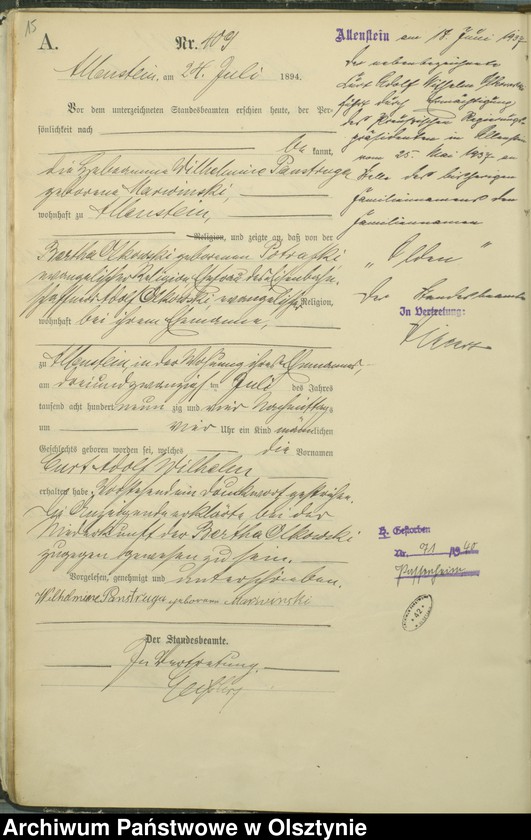 15
A.
Nr. 409
Allenstein, am 24. Juli 1894.
Vor dem unterzeichneten Standesbeamten erschien heute, der Per-
sönlichkeit nach
bekannt,
die Hebamme Wilhelmine Panstruga
geborene Marwinski,
wohnhaft zu Allenstein,
Religion, und zeigte an, daß von der
Bertha Olkowski geborenen Potrafki
evangelischer Religion Ehefrau des Eisenbahn-
schaffners Adolf Olkowski evangelischer Religion,
wohnhaft bei ihrem Ehemanne,
zu Allenstein in der Wohnung ihres Ehemannes,
am dreiundzwanzigsten Juli des Jahres
tausend acht hundert neunzig und vier Nachmittags
um vier Uhr ein Kind männlichen
Geschlechts geboren worden sei, welches die Vornamen
Curt Adolf Wilhelm
erhalten habe. Vorstehend ein Druckwort gestrichen.
Die Anzeigende erklärte bei der
Niederkunft der Bertha Olkowski
zugegen gewesen zu sein.
Vorgelesen, genehmigt und unterschrieben.
Wilhelmine Panstruga geborene Marwinski
Der Standesbeamte.
In Vertretung.
Allenstein am 18. Juni 1937
Der nebenbezeichnete
Curt Adolf Wilhelm Olkowski
führt durch Ermächtigung
des Preußischen Regierungs-
präsidenten in Allenstein
vom 25. Mai 1937 an
Stelle des bisherigen
Familiennamens den
Familiennamen
„Olden"
Der Standesbeamte
In Vertretung:
Gestorben
Nr. 91 1940
Passenheim
42
Archiwum Państwowe w Olsztynie